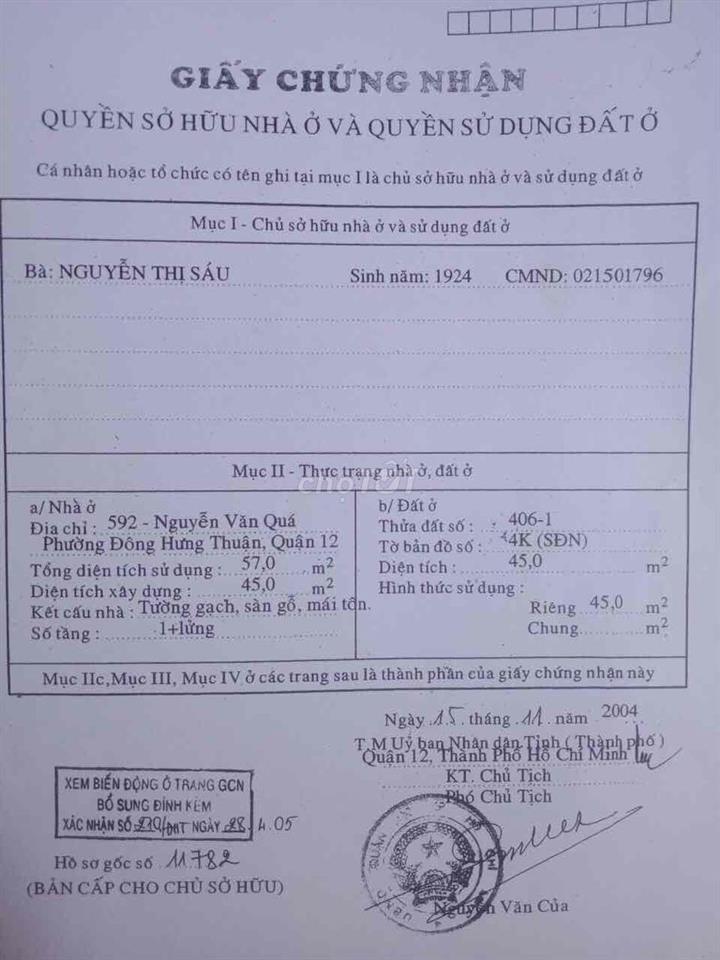 GIẤY CHỨNG NHẬN
QUYỀN SỞ HỮU NHÀ Ở VÀ QUYỀN SỬ DỤNG ĐẤT Ở
Cá nhân hoặc tổ chức có tên ghi tại mục I là chủ sở hữu nhà ở và sử dụng đất ở
Mục I - Chủ sở hữu nhà ở và sử dụng đất ở
Bà: NGUYỄN THỊ SÁU Sinh năm: 1924 CMND: 021501796
Mục II - Thực trạng nhà ở, đất ở
chợTỐT
a/ Nhà ở
Địa chỉ : 592 - Nguyễn Văn Quá
Phường Đông Hưng Thuận, Quận 12
Tổng diện tích sử dụng : 57,0 m2
Diện tích xây dựng : 45,0 m2
Kết cấu nhà : Tường gạch, sàn gỗ, mái tôn.
Số tầng : 1+lửng
b/ Đất ở
Thửa đất số : 406-1
Tờ bản đồ số : 4K (SĐN)
Diện tích : 45,0 m2
Hình thức sử dụng :
Riêng 45,0 m2
Chung m2
Mục IIc, Mục III, Mục IV ở các trang sau là thành phần của giấy chứng nhận này
Ngày 15 tháng 11 năm 2004
T.M Uỷ ban Nhân dân Tỉnh (Thành phố)
Quận 12, Thành Phố Hồ Chí Minh
KT. Chủ Tịch
Phó Chủ Tịch
XEM BIẾN ĐỘNG Ở TRANG GCN
BỔ SUNG ĐÍNH KÈM
XÁC NHẬN SỐ 210/ĐNT NGÀY 28.4.05
Hồ sơ gốc số 11782
(BẢN CẤP CHO CHỦ SỞ HỮU)
Nguyễn Văn Của